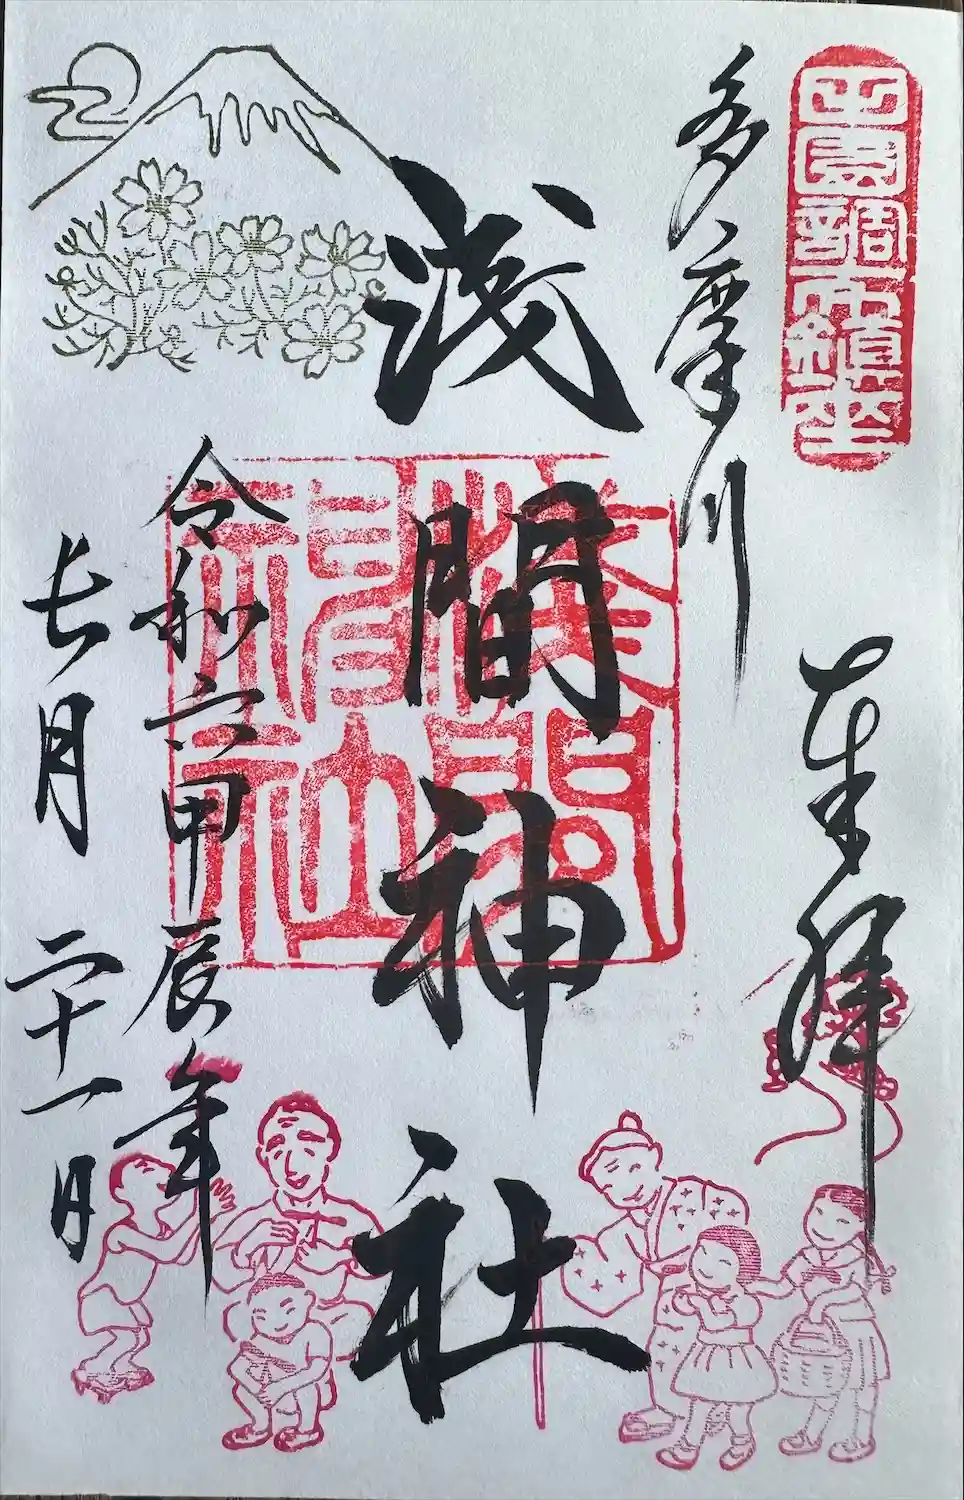 田園調布鎮座
奉拝
多摩川
浅間神社
淺間神社
令和六甲辰年
長月二十一日